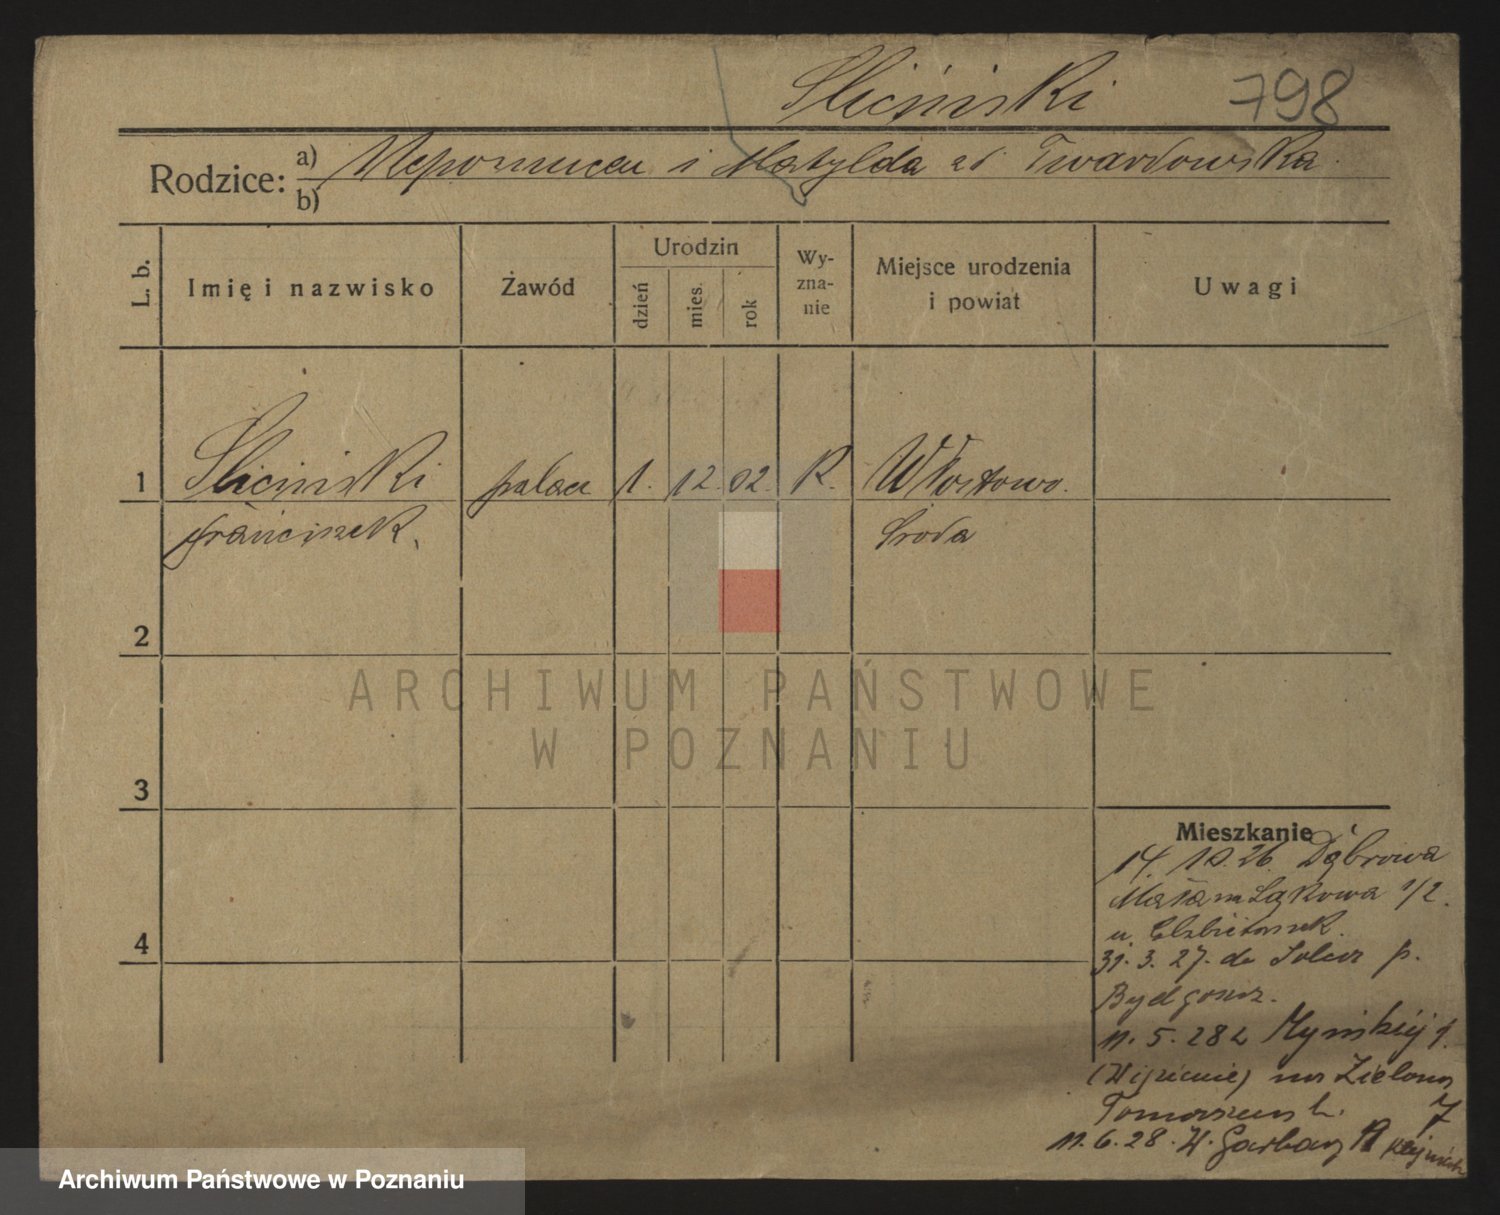 Śliciński 798
Rodzice: a) Nepomucen i Matylda zd. Twardowska.
b)
L. b. Imię i nazwisko Zawód Urodzin dzień mies. rok Wy-zna-nie Miejsce urodzenia i powiat Uwagi
1 Śliciński palacz 1. 12. 02. R. Włostowo.
Franciszek. Środa
2
3
4
Mieszkanie
14. 10. 26. Dąbrowa
Mała Łąkowa 1/2.
u.
31. 3. 27. do Solca p.
Bydgoszcz.
11. 5. 28 z Młyńskiej
(Więzienie) na Zielona 7
11. 6. 28. W. Garbary
ARCHIWUM PAŃSTWOWE
W POZNANIU
Archiwum Państwowe w Poznaniu